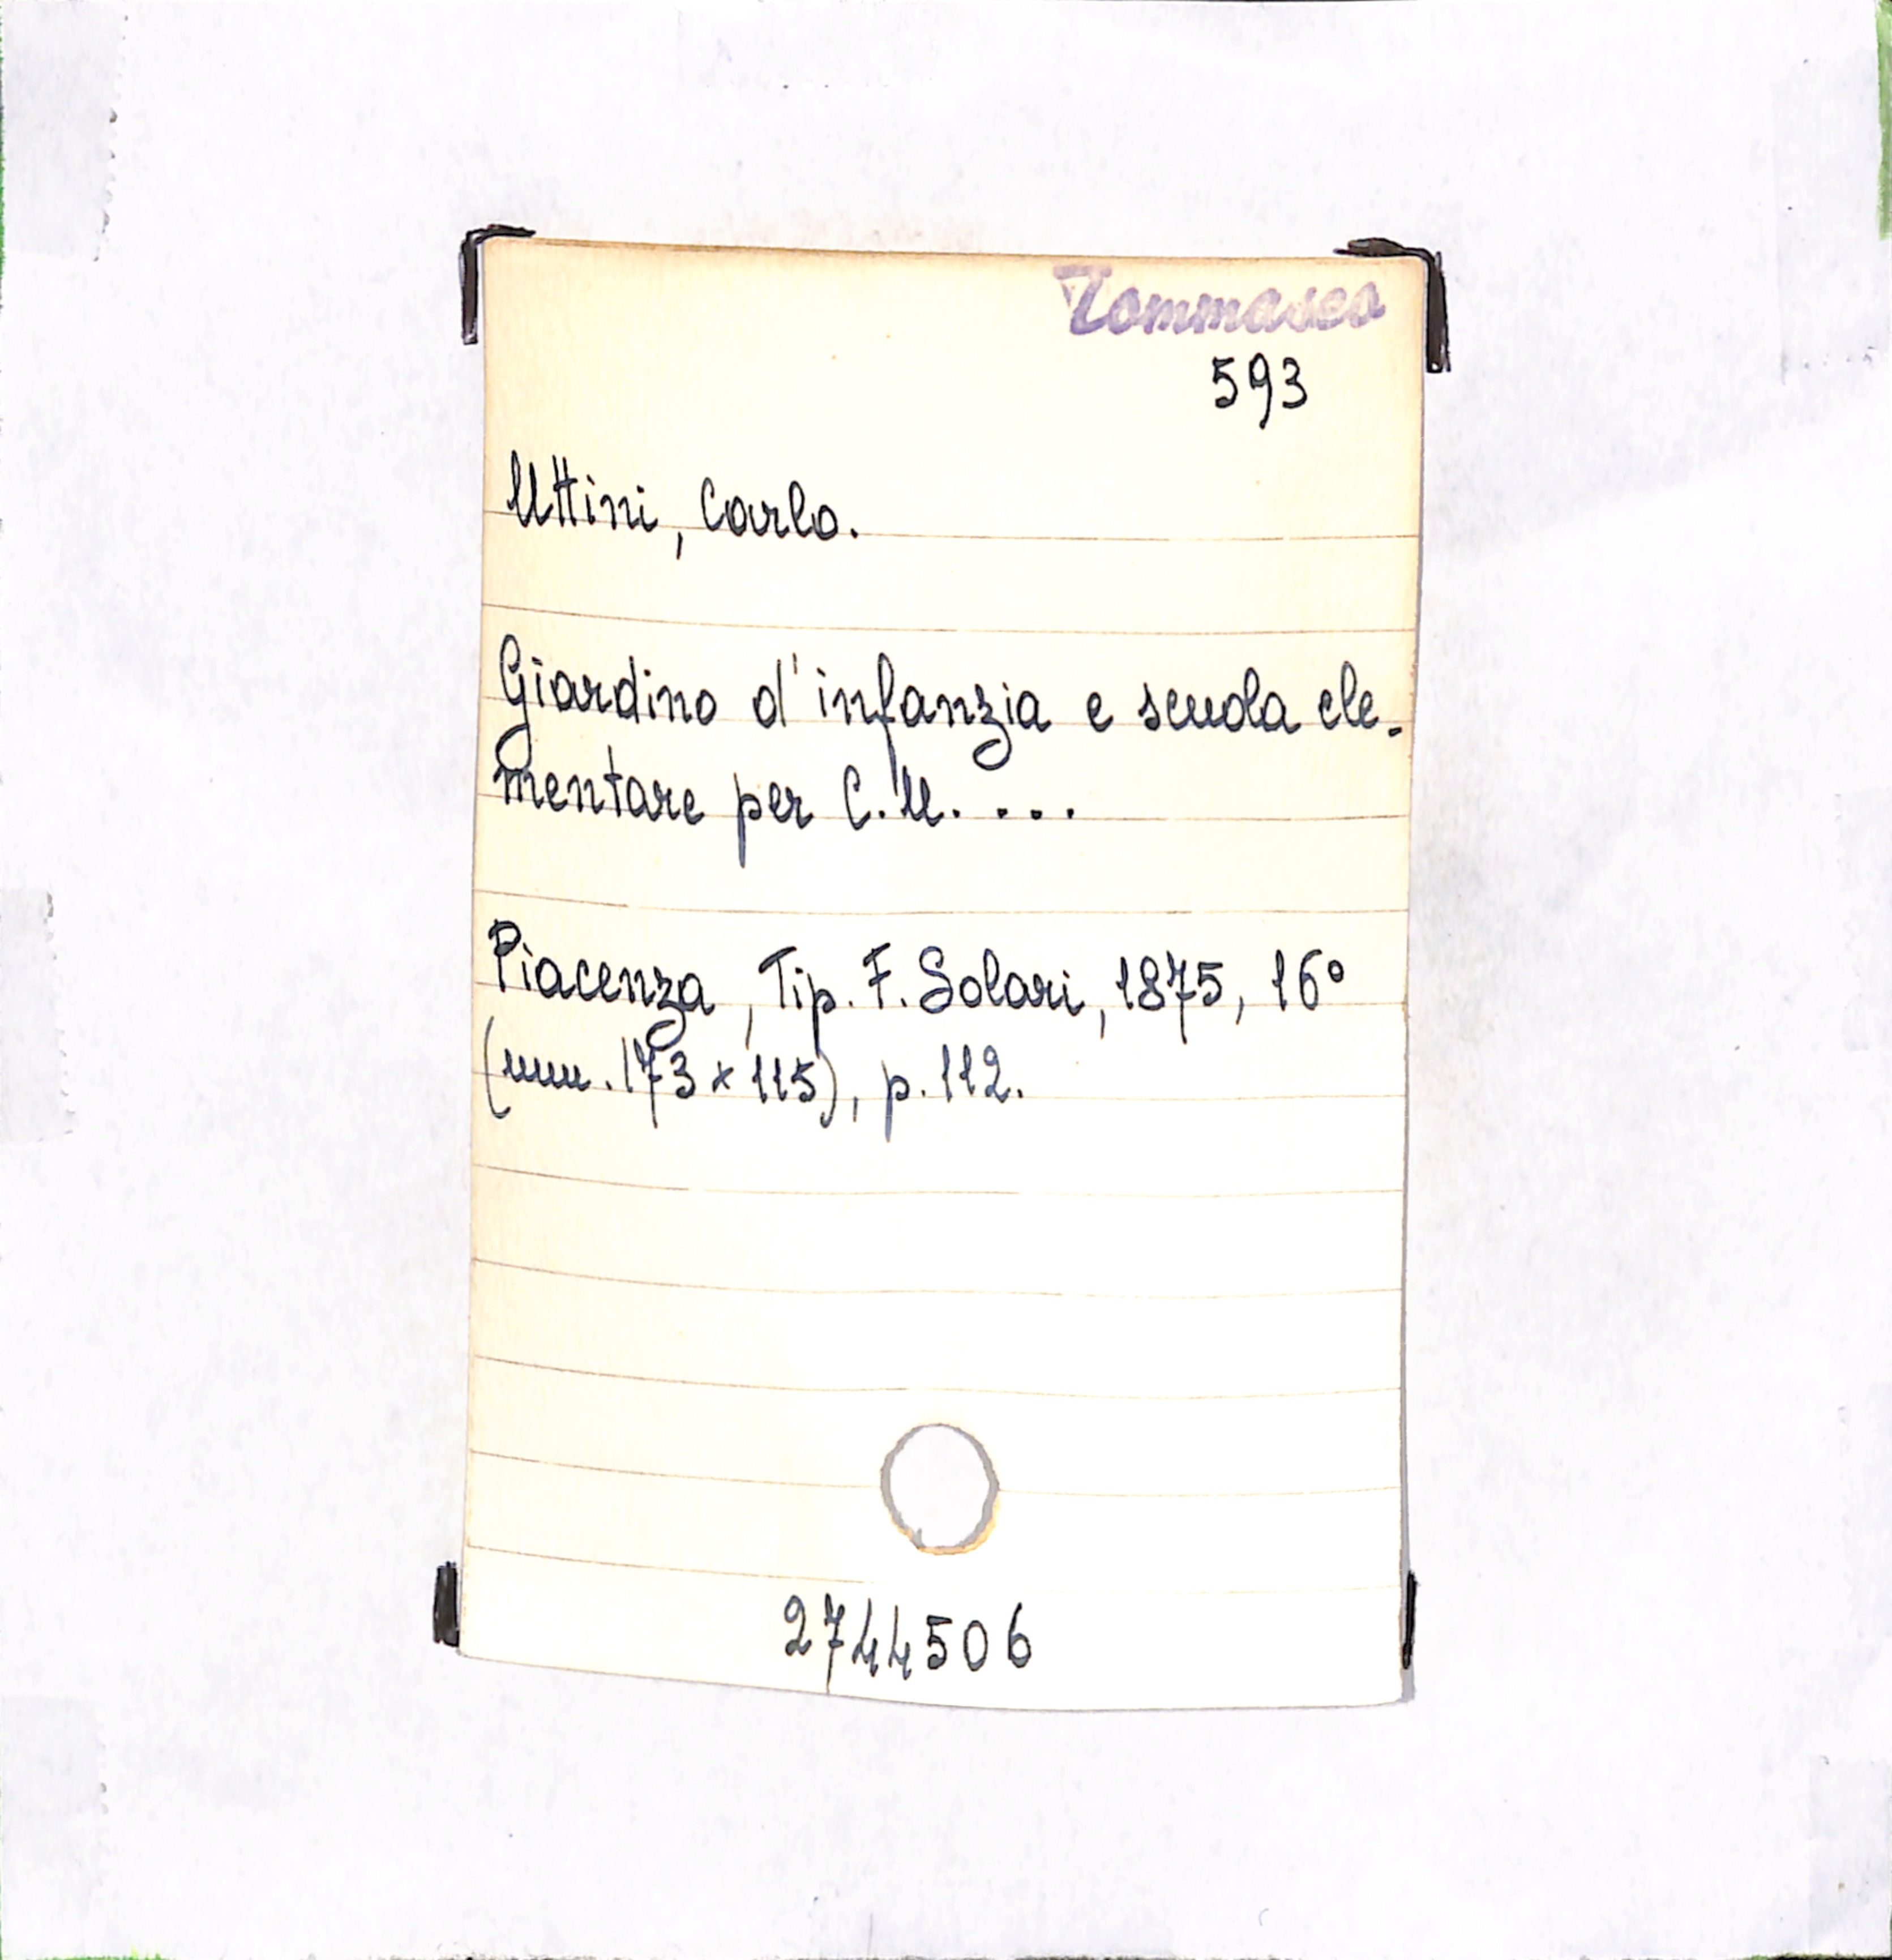 Tommaseo
593
Uttini, Carlo.
Giardino d'infanzia e scuola ele-
mentare per C.U. ...
Piacenza, Tip. F. Solari, 1875, 16°
(mm. 173 x 115), p. 112.
2744506